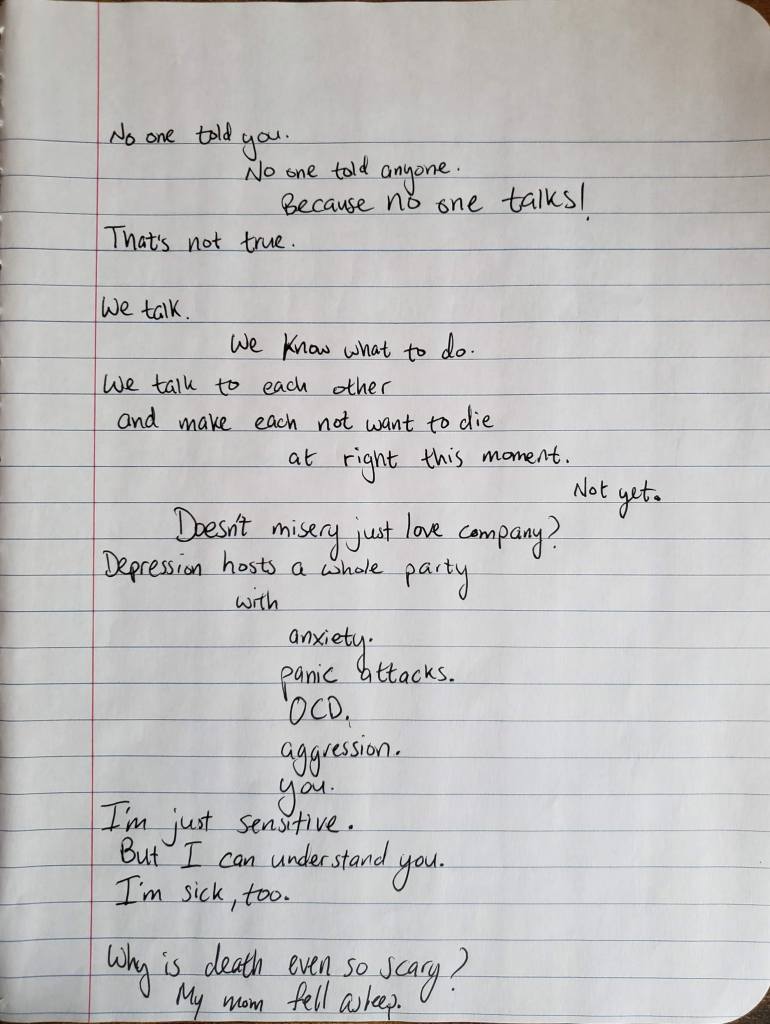 No one told you.
No one told anyone.
Because no one talks!
That's not true.
We talk.
We know what to do.
We talk to each other
and make each not want to die
at right this moment.
Not yet.
Doesn't misery just love company?
Depression hosts a whole party
with
anxiety.
panic attacks.
OCD.
aggression.
you.
I'm just sensitive.
But I can understand you.
I'm sick, too.
Why is death even so scary?
My mom fell asleep.